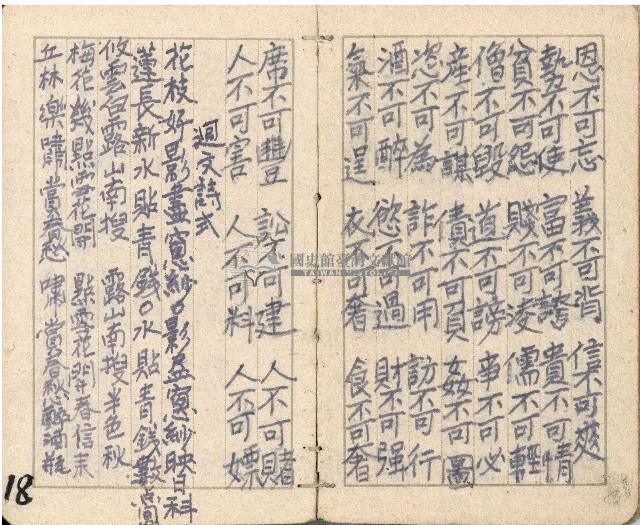 恩不可忘 義不可背 信不可爽
勢不可使 富不可誇 貴不可情
貧不可怨 賤不可凌 儒不可輕
僧不可毀 道不可謗 事不可必
產不可謀 債不可負 姦不可圖
恣不可為 詐不可用 訪不可行
酒不可醉 慾不可過 財不可强
氣不可逞 衣不可奢 食不可奢
席不可豐 訟不可建 人不可賭
人不可害 人不可料 人不可嫖
迴文詩式
花枝好影畫窻紗 影盖窻紗映日科
蓮長新水貼青錢 水貼青錢數
攸雲白露山南搜 露山南搜半色秋
梅花幾點雪花開 點雪花開春信来
丘林樂嘯賞春愁 嘯賞春愁醉酒瓶
國史館臺灣文獻館
TAIWAN HISTORICA
18